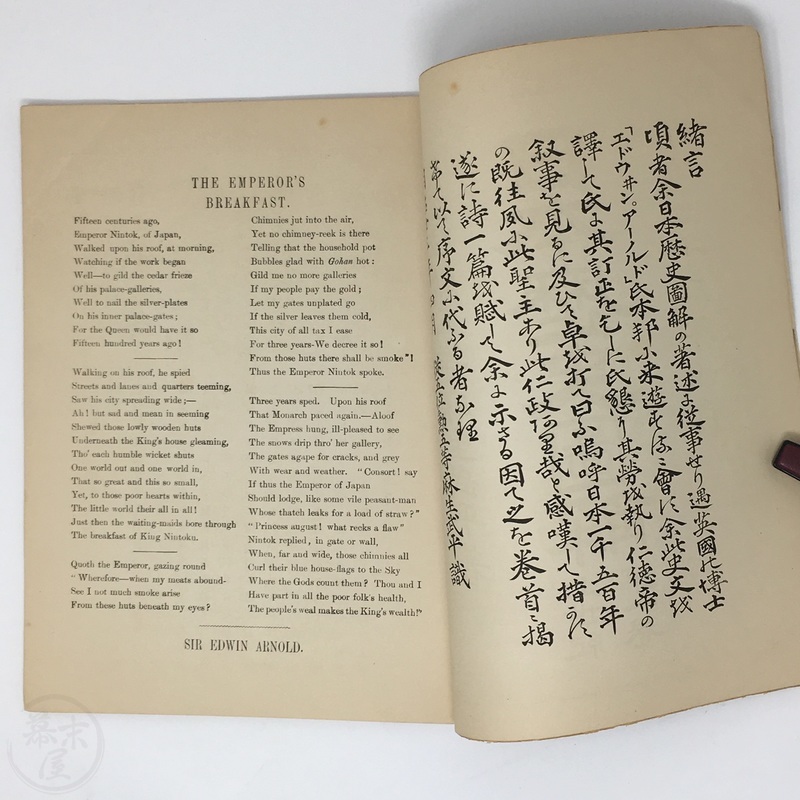 THE EMPEROR'S
BREAKFAST.
Fifteen centuries ago,
Emperor Nintok, of Japan,
Walked upon his roof, at morning,
Watching if the work began
Well—to gild the cedar frieze
Of his palace-galleries,
Well to nail the silver-plates
On his inner palace-gates;
For the Queen would have it so
Fifteen hundred years ago!
Walking on his roof, he spied
Streets and lanes and quarters teeming,
Saw his city spreading wide;—
Ah! but sad and mean in seeming
Shewed those lowly wooden huts
Underneath the King's house gleaming,
Tho' each humble wicket shuts
One world out and one world in,
That so great and this so small,
Yet, to those poor hearts within,
The little world their all in all!
Just then the waiting-maids bore through
The breakfast of King Nintoku.
Quoth the Emperor, gazing round
"Wherefore—when my meats abound-
See I not much smoke arise
From these huts beneath my eyes?
Chimnies jut into the air,
Yet no chimney-reek is there
Telling that the household pot
Bubbles glad with Gohan hot:
Gild me no more galleries
If my people pay the gold;
Let my gates unplated go
If the silver leaves them cold,
This city of all tax I ease
For three years-We decree it so!
From those huts there shall be smoke"!
Thus the Emperor Nintok spoke.
Three years sped. Upon his roof
That Monarch paced again.—Aloof
The Empress hung, ill-pleased to see
The snows drip thro' her gallery,
The gates agape for cracks, and grey
With wear and weather. "Consort! say
If thus the Emperor of Japan
Should lodge, like some vile peasant-man
Whose thatch leaks for a load of straw?"
"Princess august! what recks a flaw"
Nintok replied, in gate or wall,
When, far and wide, those chimnies all
Curl their blue house-flags to the Sky
Where the Gods count them? Thou and I
Have part in all the poor folk's health,
The people's weal makes the King's wealth!"
SIR EDWIN ARNOLD.
緒言
頃者余日本歴史圖解の著述に從事せり遇英國の博士
「エドウヰン。アーノルド」氏本邦に来遊せるに會す余此史文を
譯して氏に其訂正を乞しに氏懇に其勞を執り仁德帝の
叙事を見るに及ひて卓を打て曰ふ嗚呼日本一千五百年
の既往夙に此聖主あり此仁政ある哉と感嘆して措かす
遂に詩一篇を賦して余に示さる因て之を巻首に掲
以て序文に代ふる者なり
四月 從五位勲五等麻生武平識
幕末屋